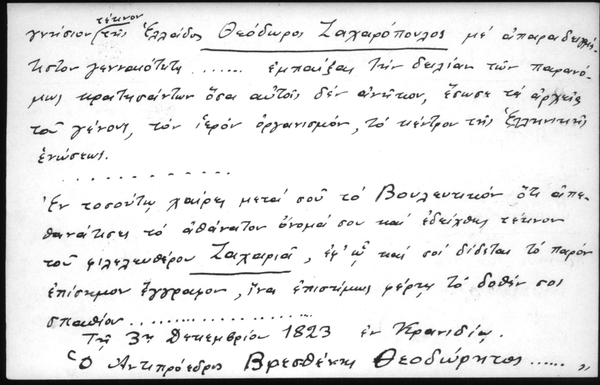 τέκνον
γνήσιον (τῆς Ἑλλάδος Θεόδωρος Ζαχαρόπουλος μέ ἀπαραδειγμά-
τιστον γενναιότητα ....... ἐμπαίξας τήν δειλίαν τῶν παρανό-
μως κρατησάντων ὅσα αὐτοῖς δέν ἀνῆκον, ἔσωσε τά ἀρχεῖα
τοῦ γένους, τόν ἱερόν ὀργανισμόν, τό κέντρον τῆς Ἑλληνικῆς
ἑνώσεως.
. . . . . . . . . . . . .
Ἐν τοσούτῳ χαίρει μετά σοῦ τό Βουλευτικόν ὅτι ἀπε-
θανάτισες τό ἀθάνατον ὄνομά σου καί ἐδείχθης τέκνον
τοῦ φιλελευθέρου Ζαχαριᾶ, ἐφ' ᾧ καί σοί δίδεται τό παρόν
ἐπίσημον ἔγγραφον, ἵνα ἐπιστήμως φέρῃς τό δοθέν σοι
σπαθίον .....................
Τῇ 3ῃ Δεκεμβρίου 1823 ἐν Κρανιδίῳ.
Ὁ Ἀντιπρόεδρος Βρεσθένης Θεοδώρητος ...... "